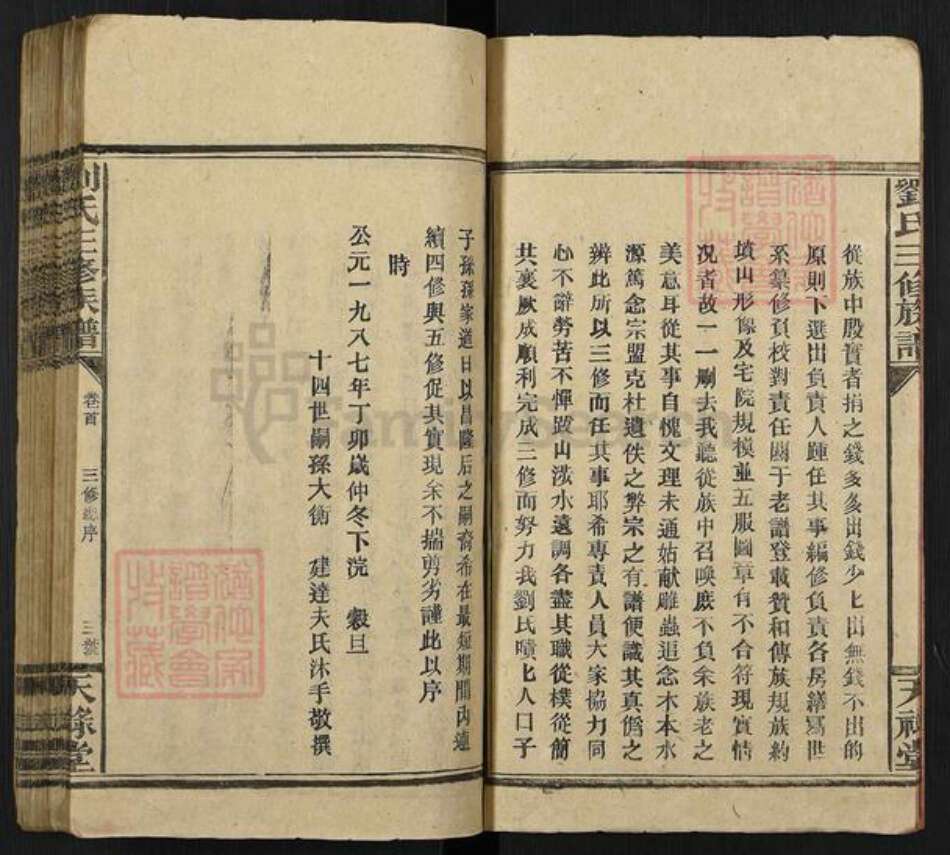 劉氏三修族譜
天祿堂
從族中殷實者捐之錢多多出錢少匕出無錢不出的
原則下選出負責人踵任其事編修負責各房繕寫世
系纂修負校對責任關于老譜登載贊和傳族規族約
墳山形像及宅院規模並五服圖章有不合符現實情
況者故一一刷去我聽從族中召喚庶不負余族老之
美意耳從其事自愧文理未通姑献雕蟲追念木本水
源篤念宗盟克杜遺佚之弊宗之有譜便識其真僞之
辨此所以三修而任其事耶希專責人員大家協力同
心不辭勞苦不憚跋山涉水遠調各盡其職從樸從簡
共襄厥成順利完成三修而努力我劉氏嘖匕人口子
子孫孫家道日以昌隆后之嗣裔希在最短期間內連
續四修與五修促其實現余不揣剪劣謹此以序
時
公元一九八七年丁卯歲仲冬下浣 穀旦
十四世嗣孫大衡 建達夫氏沐手敬撰
劉氏三修族譜
卷首
三修總序
三葉
天祿堂
FamilySearch